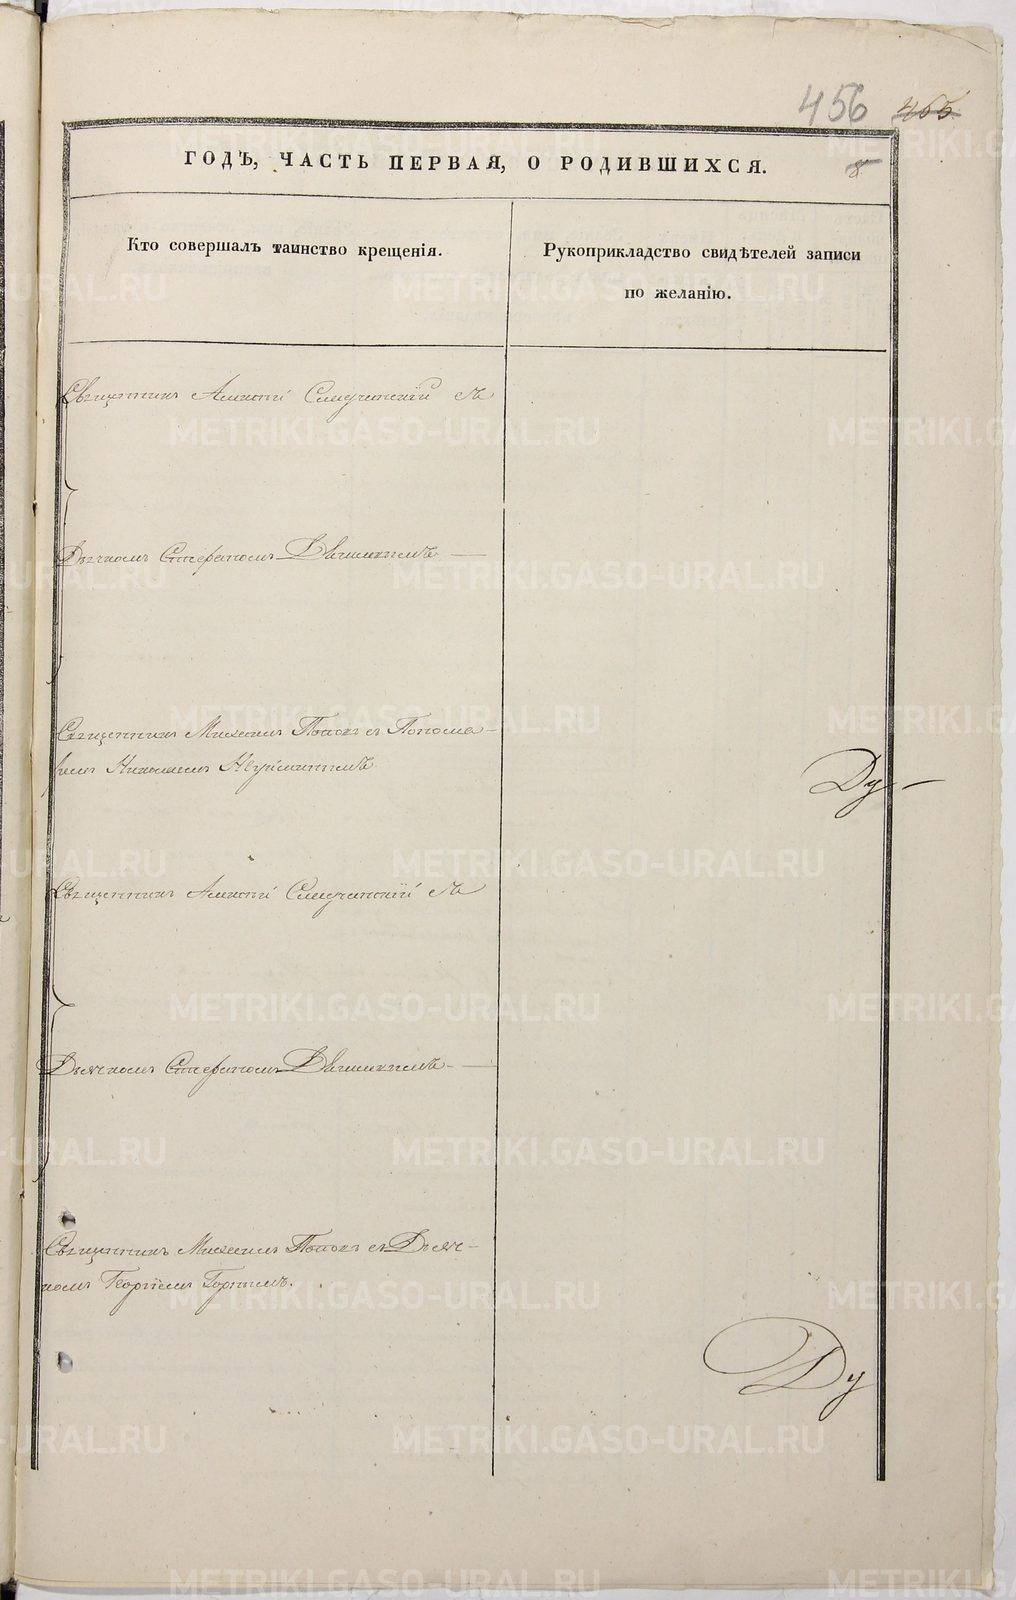 456 455
8
ГОДЪ, ЧАСТЬ ПЕРВАЯ, О РОДИВШИХСЯ.
Кто совершалъ таинство крещенія.
Рукоприкладство свидѣтелей записи
по желанію.
Священникъ Алексѣй Смерчинскій съ
Дьячкомъ Стефаномъ
Священникъ Михаилъ Поповъ съ Понома-
ремъ Николаемъ
Ду-
Священникъ Алексѣй Смерчинскій съ
Дьячкомъ Стефаномъ
Священникъ Михаилъ Поповъ съ Дьяч-
комъ Георгіемъ
Ду
METRIKI.GASO-URAL.RU